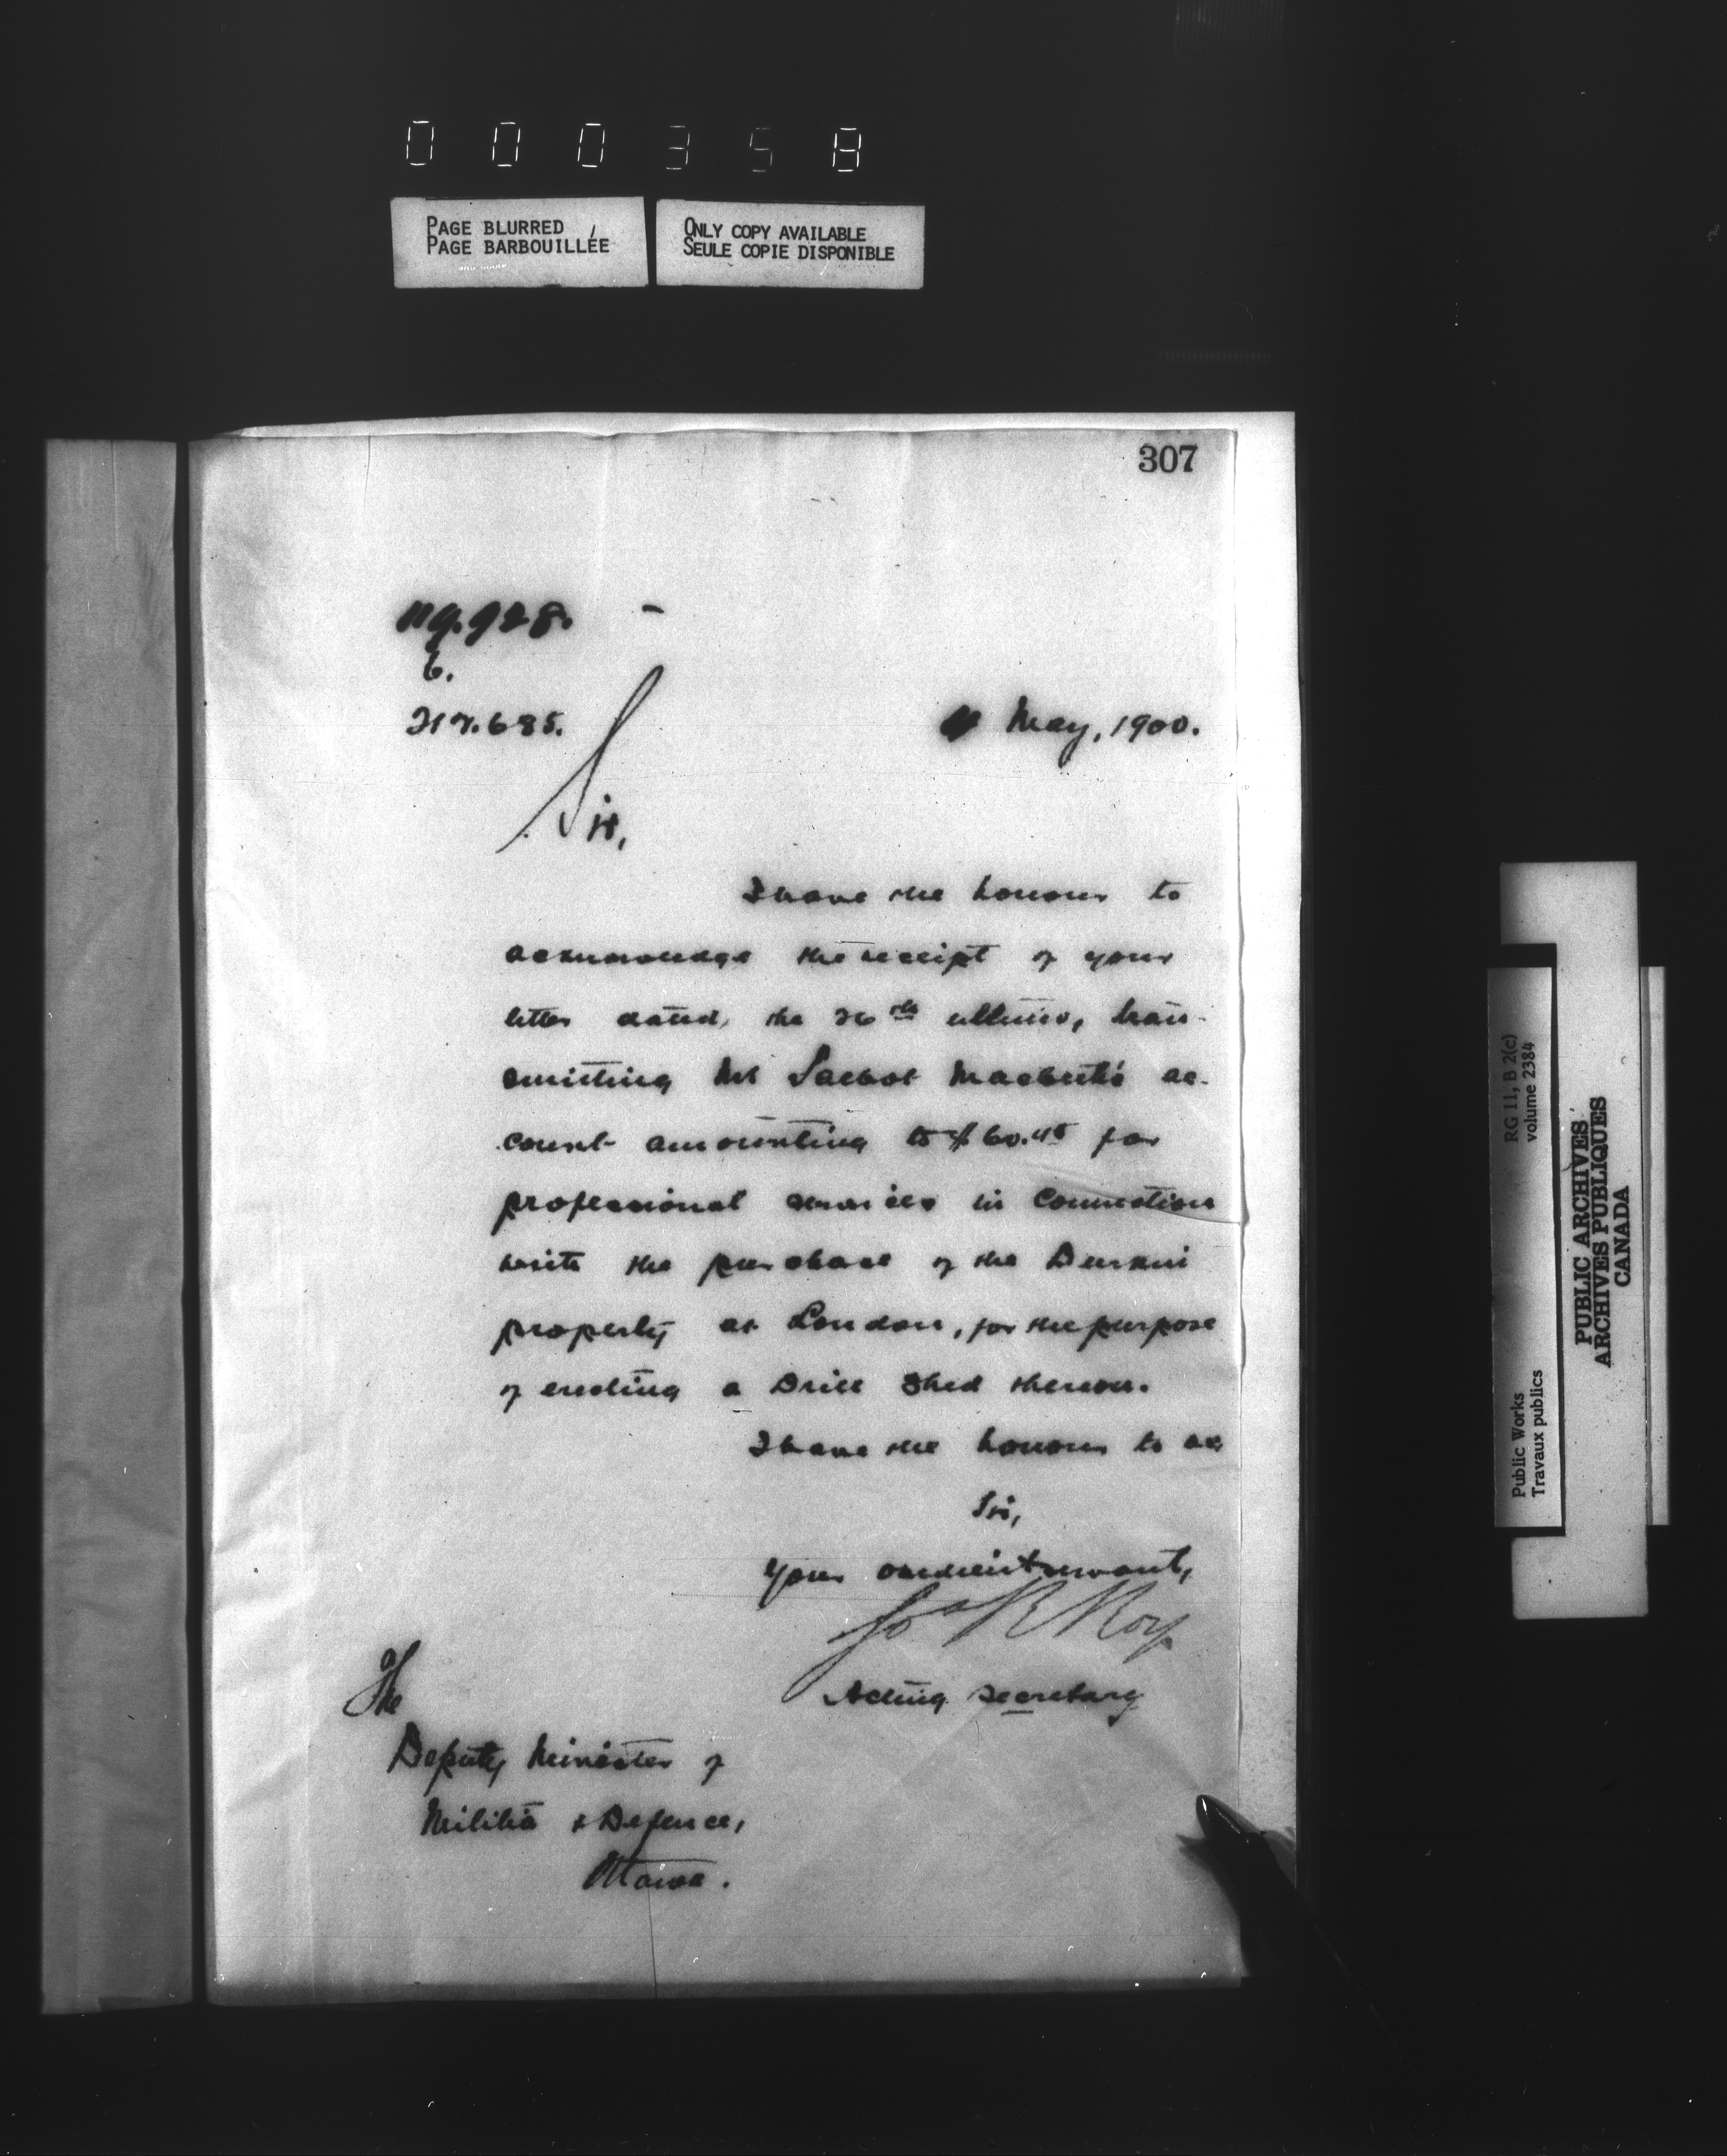 000358
PAGE BLURRED
PAGE BARBOUILLÉE
ONLY COPY AVAILABLE
SEULE COPIE DISPONIBLE
307
119.928.
6.
217.685.
May, 1900.
Sir,
I have the honour to
acknowledge the receipt of your
letter dated, the 26th ultimo, tran-
smitting Mr Talbot Macbeth's ac-
count amounting to $60.45 for
professional services in connection
with the purchase of the Durkin
property at London, for the purpose
of erecting a Drill Shed thereon.
I have the honour to be
Sir,
Your obedient servant,
Jos R Roy
Acting Secretary
The
Deputy Minister of
Militia & Defence,
Ottawa.
RG 11, B 2(c)
volume 2384
Public Works
Travaux publics
PUBLIC ARCHIVES
ARCHIVES PUBLIQUES
CANADA